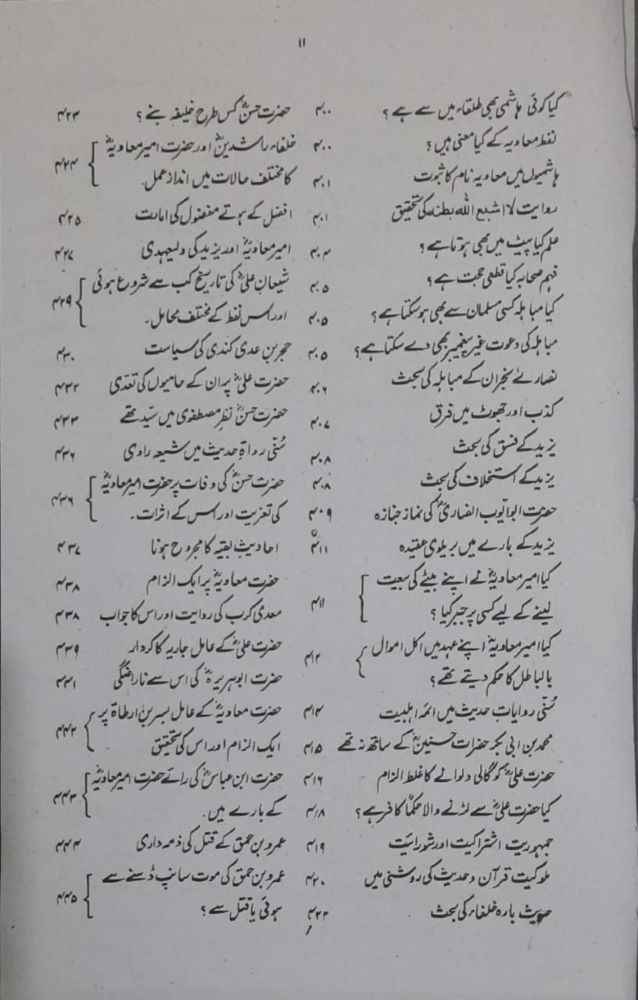 ۱۱
کیا کوئی ہاشمی بھی طلقاء میں سے ہے؟ ۴۰۰
لفظ معاویہ کے کیا معنی ہیں؟ ۴۰۰
ہاشمیوں میں معاویہ نام کا ثبوت ۴۰۱
روایت لا اشبع اللہ بطنہ کی تحقیق ۴۰۱
علم کیا پیٹ میں بھی ہوتا ہے؟ ۴۰۴
فہم صحابہ کیا قطعی حجت ہے؟ ۴۰۵
کیا مباہلہ کسی مسلمان سے بھی ہو سکتا ہے؟ ۴۰۵
مباہلہ کی دعوت غیر پیغمبر بھی دے سکتا ہے؟ ۴۰۵
نصاریٰ نجران کے مباہلہ کی بحث ۴۰۶
کذب اور جھوٹ میں فرق ۴۰۷
یزید کے فسق کی بحث ۴۰۸
یزید کے استخلاف کی بحث ۴۰۸
حضرت ابو ایوب انصاریؓ کی نماز جنازہ ۴۰۹
یزید کے بارے میں بریلوی عقیدہ ۴۱۱
کیا امیر معاویہؓ نے اپنے بیٹے کی بیعت
لینے کے لیے کسی پر جبر کیا؟ ۴۱۱
کیا امیر معاویہؓ اپنے عہد میں اکل اموال
بالباطل کا حکم دیتے تھے؟ ۴۱۲
سُنی روایات حدیث میں ائمہ اہلبیت ۴۱۴
محمد بن ابی بکر حضرات حسنینؓ کے ساتھ نہ تھے ۴۱۵
حضرت علیؓ کو گالی دلوانے کا غلط الزام ۴۱۶
کیا حضرت علیؓ سے لڑنے والا حکماً کافر ہے؟ ۴۱۸
جمہوریت اشتراکیت اور شورائیت ۴۱۹
ملوکیت قرآن و حدیث کی روشنی میں ۴۲۰
حدیث بارہ خلفاء کی بحث ۴۲۲
حضرت حسنؓ کس طرح خلیفہ بنے؟ ۴۲۳
خلفاء راشدینؓ اور حضرت امیر معاویہؓ
کا مختلف حالات میں انداز عمل۔ ۴۲۴
افضل کے ہوتے مفضول کی امارت ۴۲۵
امیر معاویہؓ اور یزید کی ولیعہدی ۴۲۷
شیعان علیؓ کی تاریخ کب سے شروع ہوئی
اور اس لفظ کے مختلف محامل۔ ۴۲۹
حجر بن عدی کندی کی سیاست ۴۳۰
حضرت علیؓ پر ان کے حامیوں کی تعدی ۴۳۲
حضرت حسنؓ نظر مصطفوی میں سیّد تھے ۴۳۳
سُنی رواۃ حدیث میں شیعہ راوی ۴۳۶
حضرت حسنؓ کی وفات پر حضرت امیر معاویہؓ
کی تعزیت اور اس کے اثرات۔ ۴۳۶
احادیث بقیہ کا مجروح ہونا ۴۳۷
حضرت معاویہؓ پر ایک الزام ۴۳۸
معدی کرب کی روایت اور اس کا جواب ۴۳۸
حضرت علیؓ کے عامل جاریہ کا کردار ۴۳۹
حضرت ابوہریرہؓ کی اس سے ناراضگی ۴۴۱
حضرت معاویہؓ کے عامل بسر بن ارطاۃ پر
ایک الزام اور اس کی تحقیق ۴۴۲
حضرت ابن عباسؓ کی رائے حضرت امیر معاویہؓ
کے بارے میں۔ ۴۴۳
عمرو بن حمق کے قتل کی ذمہ داری ۴۴۴
عمرو بن حمق کی موت سانپ ڈسنے سے
ہوئی یا قتل سے؟ ۴۴۵